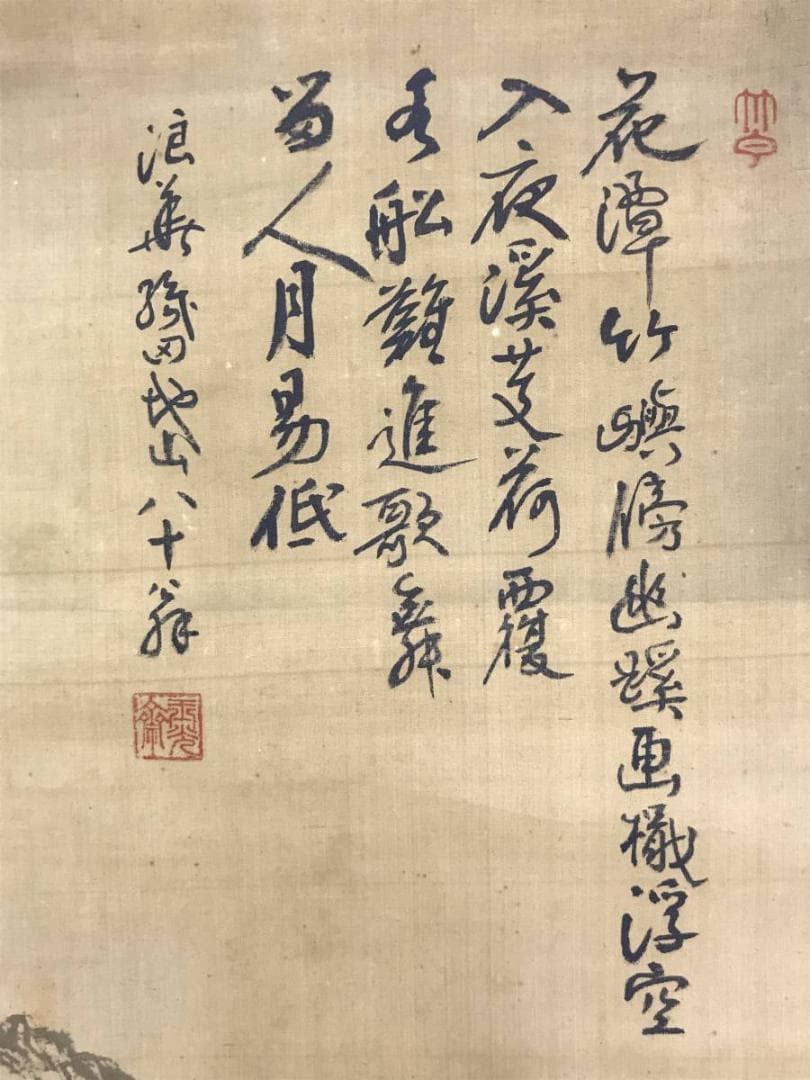 花潭竹嶼傍幽蹊画檝浮空
入夜溪芰荷覆
水船難進歌舞
留人月易低
浪華田岱山八十翁